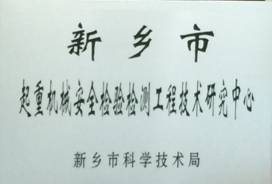 新乡市
起重机械安全检验检测工程技术研究中心
新乡市科学技术局